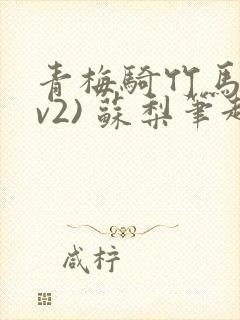 青梅騎竹馬
v2) 蘇梨筆趣
咸柠